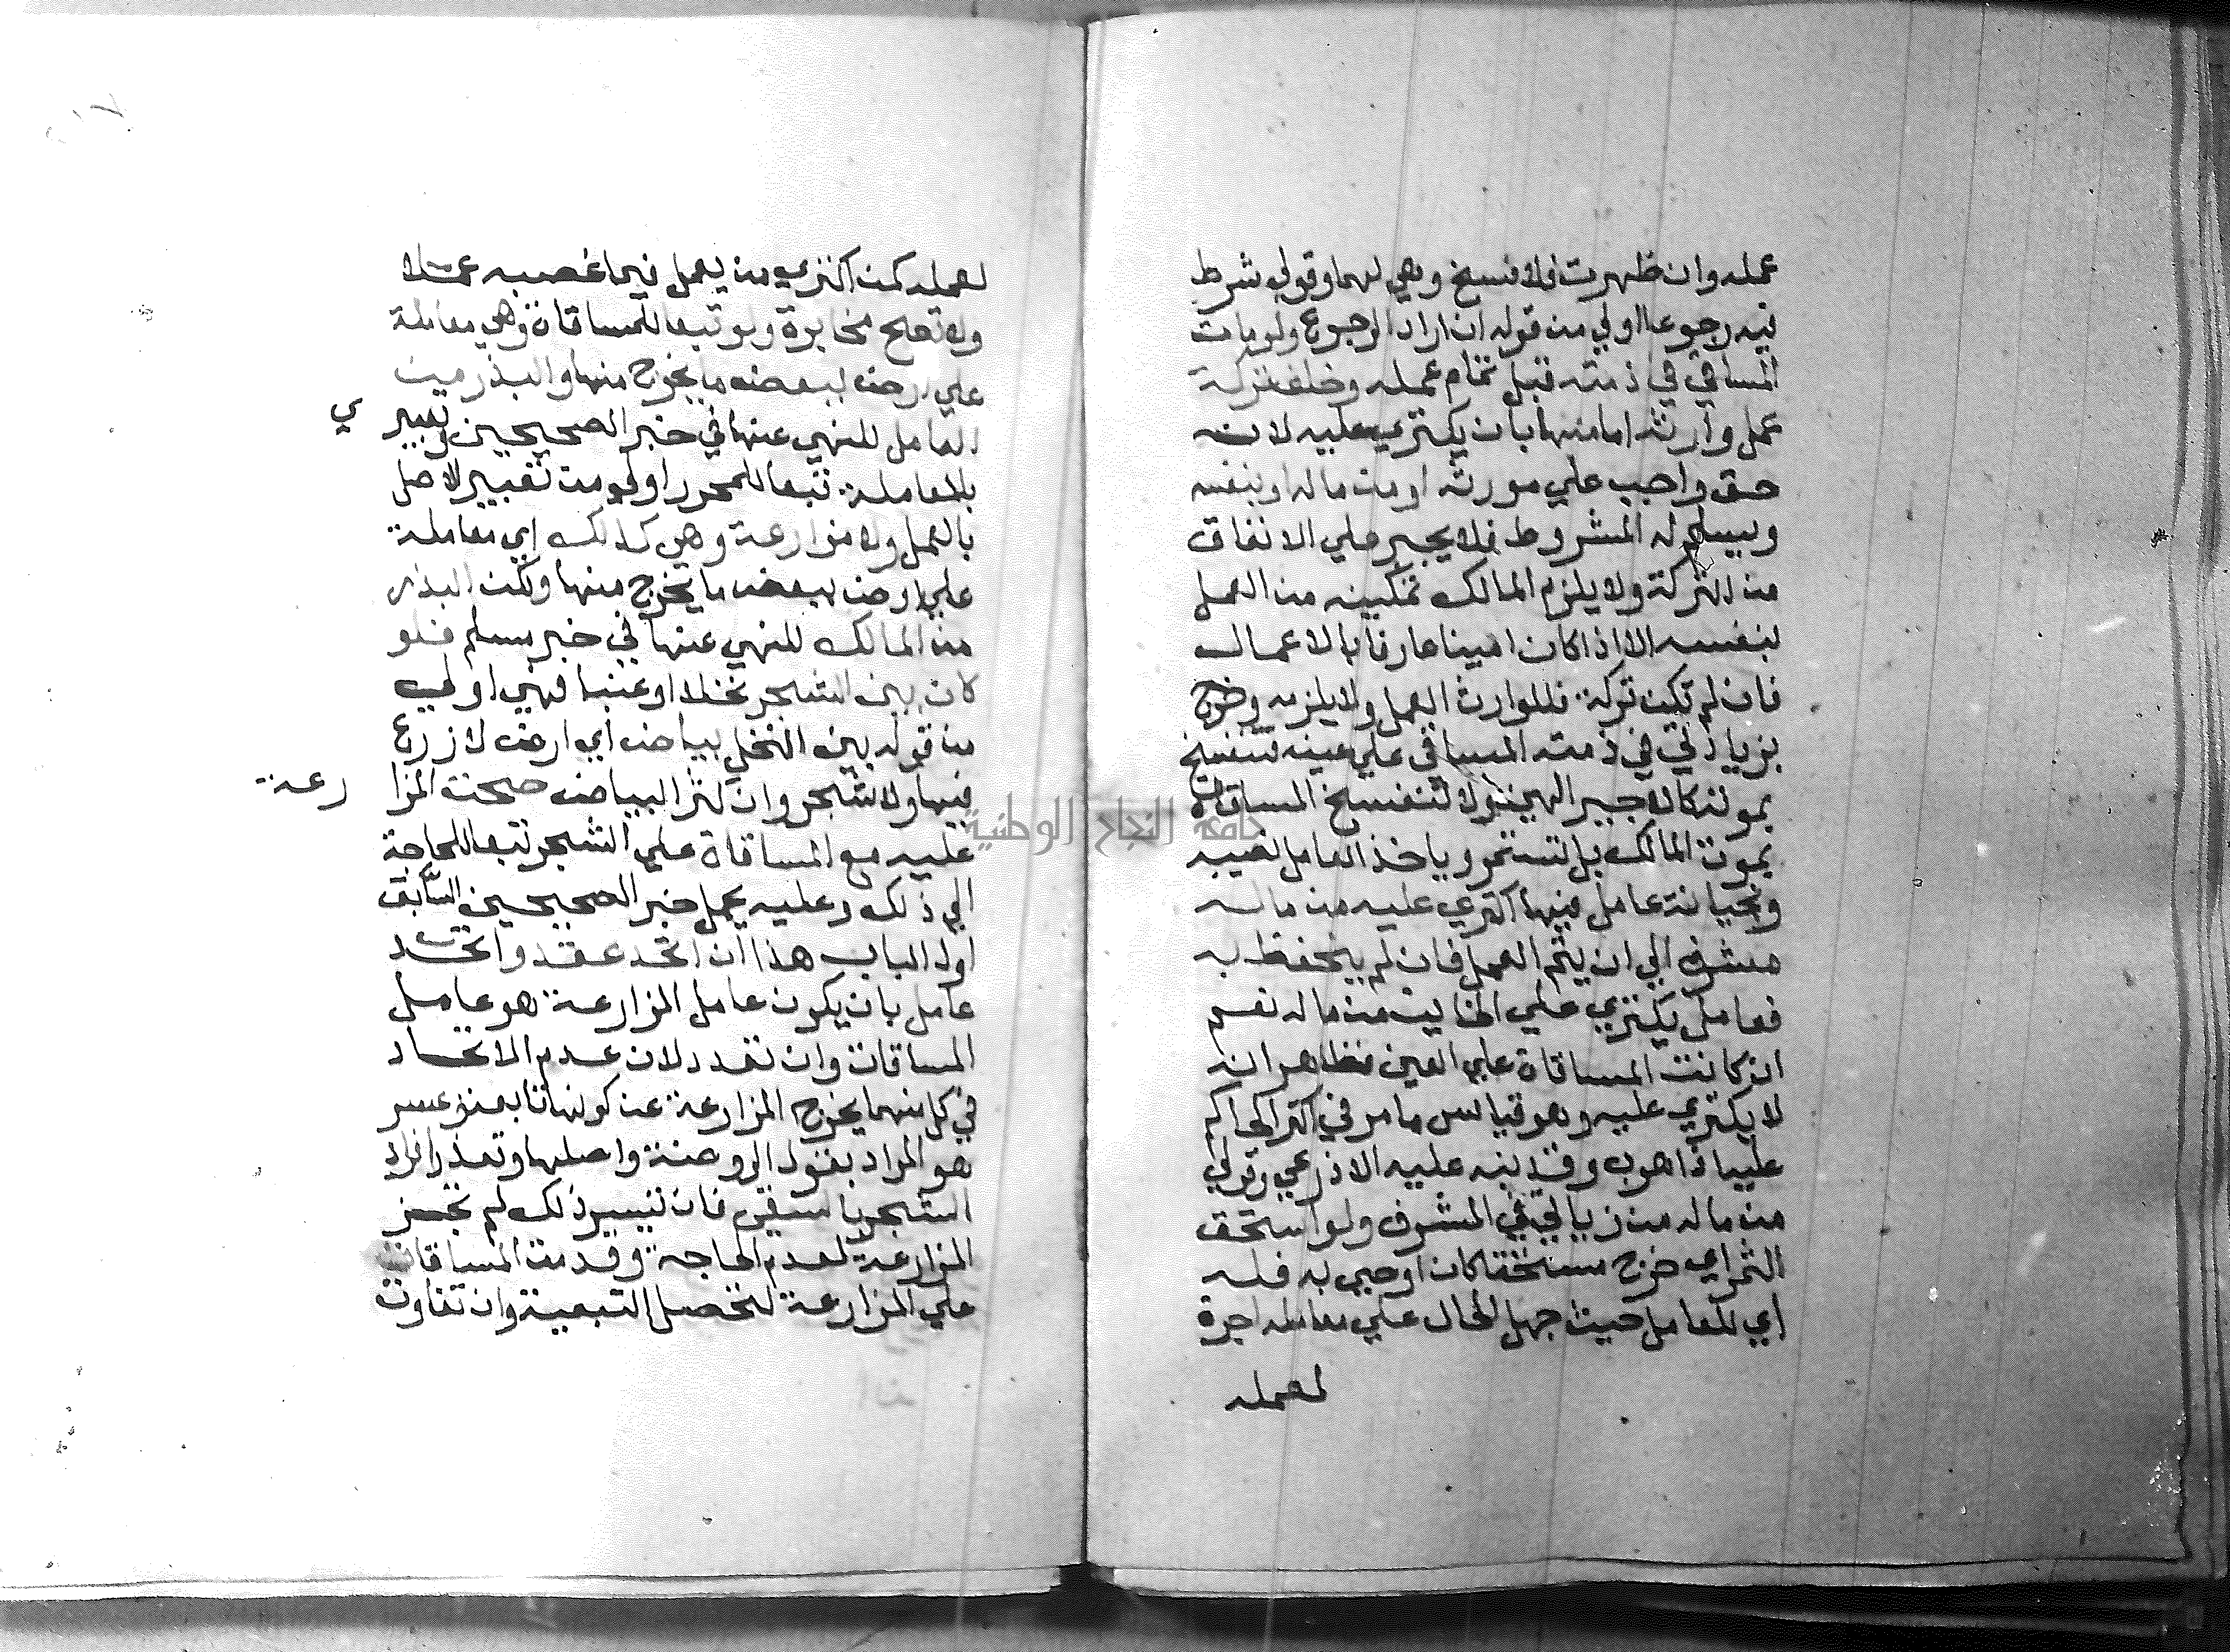 عمله وان ظهرت فلا فسخ وهي لهما وقولي شرط
فيه رجوعا اولي من قوله ان اراد الرجوع ولو مات
المساقي في ذمته قبل تمام عمله وخلف تركة
عمل وارثه اما منها بان يكتري عليه لانه
حق واجب علي مورثه او من ماله او بنفسه
ويسلم له المشروط فلا يجبر علي الانفاق
من التركة ولا يلزم المالك تمكينه من العمل
بنفسه الا اذا كان امينا عارفا بالاعمال
فان لم تكن تركة فللوارث العمل ولا يلزمه وخرج
بزيادتي في ذمته المساقي علي عينه فتنفسخ
بموته كالاجير المعين ولا تنفسخ المساقاة
بموت المالك بل تستمر وياخذ العامل نصيبه
وبخيانة عامل فيها اكتري عليه من ماله
مشرف الي ان يتم العمل فان لم يتحفظ به
فعامل يكتري علي الخاين من ماله نعم
ان كانت المساقاة علي العين فظاهر انه
لا يكتري عليه وهو قياس ما مر في اكترا الحاكم
عليه اذا هرب وقد نبه عليه الاذرعي وقولي
من ماله من زيادتي في المشرف ولو استحق
الثمر اي خرج مستحقا كان اوصي به فله
اي للعامل حيث جهل الحال علي معامله اجرة
لعمله
لعمله كمن اكتري من يعمل فيما غصبه عملا
ولا تصح مخابرة ولو تبعا للمساقاة وهي معاملة
علي ارض ببعض ما يخرج منها والبذر من
العامل للنهي عنها في خبر الصحيحين وتعبير
ي
بالمعاملة تبعا للمحرر اولي من تعبير الاصل
بالعمل ولا مزارعة وهي كذلك اي معاملة
علي ارض ببعض ما يخرج منها ولكن البذر
من المالك للنهي عنها في خبر مسلم فلو
كان بين الشجر نخلا او عنبا فهي اولي
من قوله بين النخل بياض اي ارض لا زرع
فيها ولا شجر وان كثر البياض صحت المزا
رعة
عليه مع المساقاة علي الشجر تبعا للحاجة
الي ذلك وعليه يحمل خبر الصحيحين السابق
اول الباب هذا ان اتحد عقد واتحد
عامل بان يكون عامل المزارعة هو عامل
المساقات وان تعدد لان عدم الاتحاد
في كل منهما يخرج المزارعة عن كونها تابعة وعسر
هو المراد بقول الروضة واصلها وتعذر افراد
الشجر بالسقي فان تيسر ذلك لم تجز
المزارعة لعدم الحاجة وقدمت المساقات
علي المزارعة لتحصل التبعية وان تفاوت
جامعة النجاح الوطنية